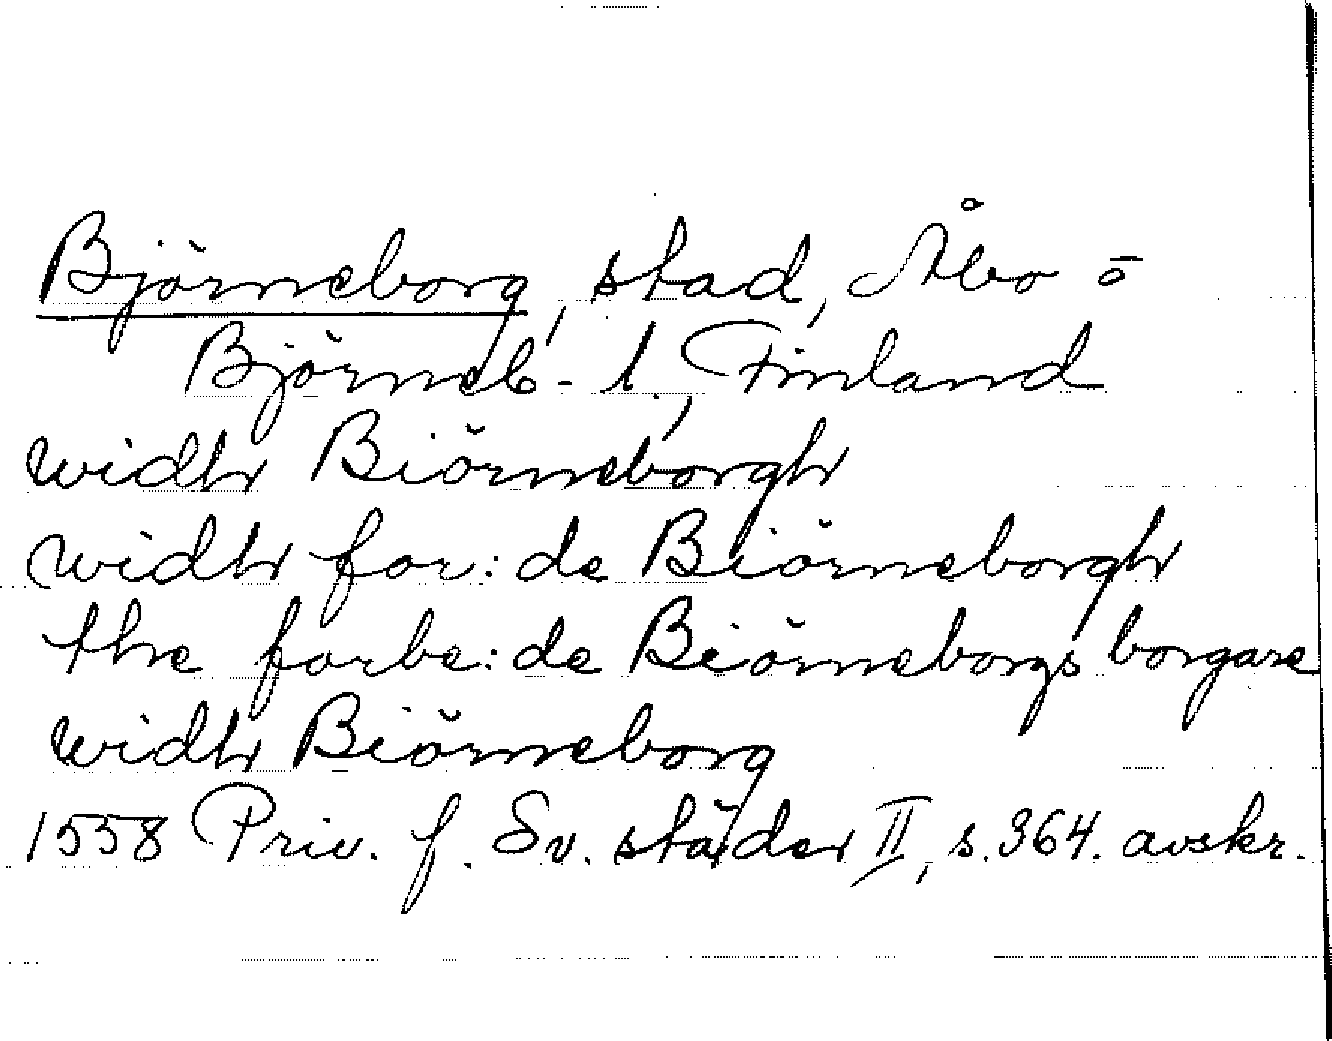 Björneborg, stad, Åbo o
Björneb. l, Finland
widh Biörneborgh
widh for: de Biörneborgh
the forbe: de Biörneborgs borgare
widh Biörneborg
1558 Priv. f. Sv. städer II, s. 364. avskr.